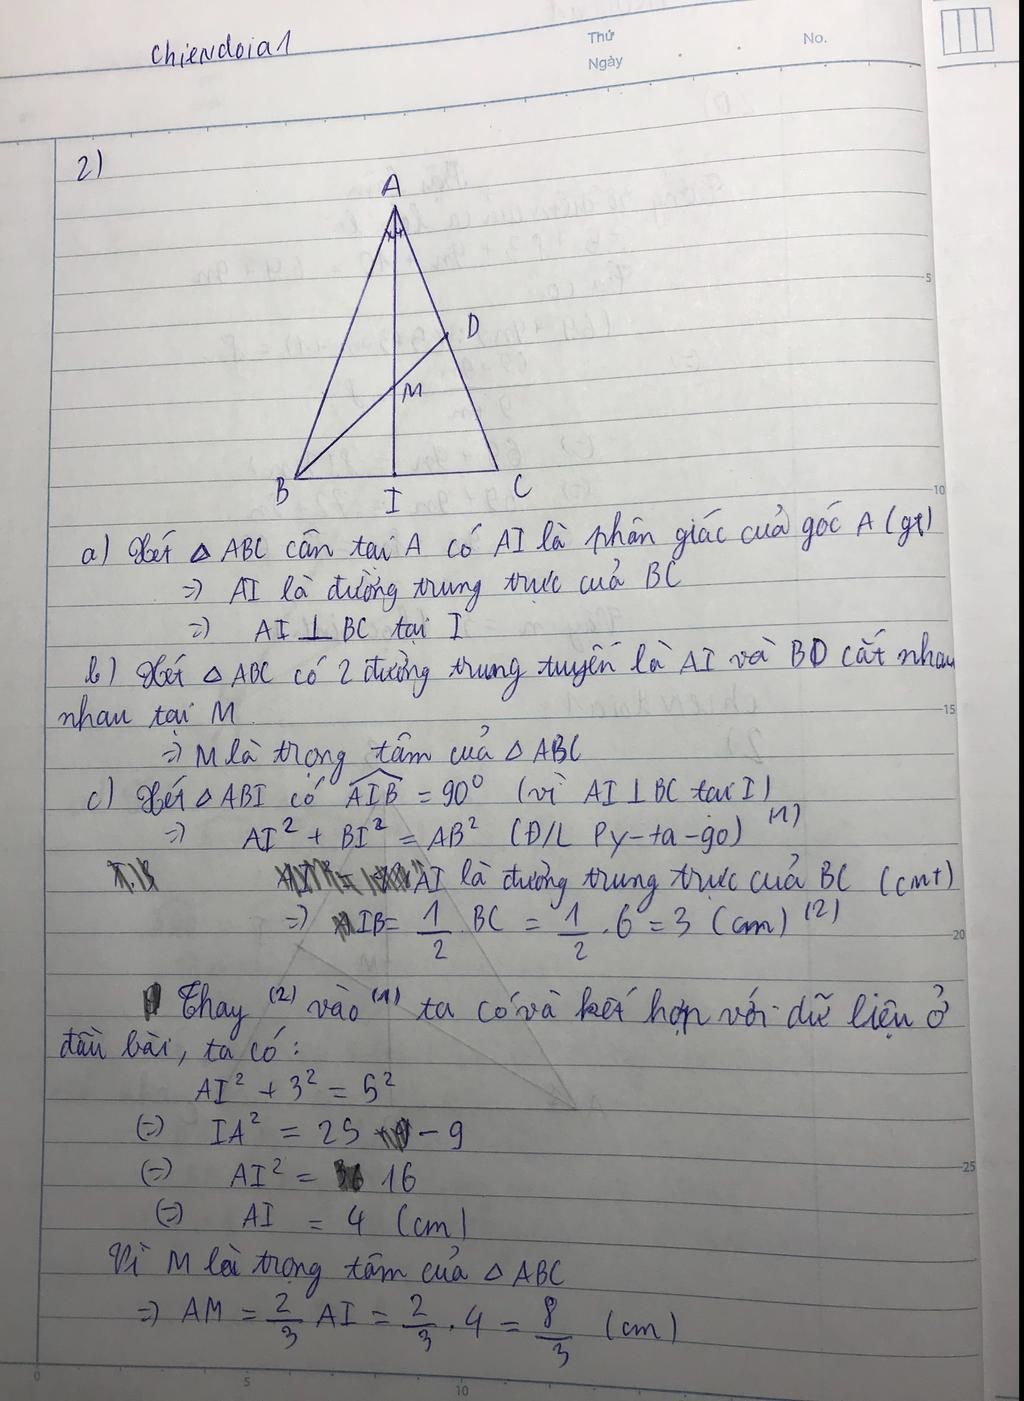 chiendoia1
Thứ
No.
Ngày
2)
A
D
M
B
I
C
5
10
a) Xét △ ABC cân tại A có AI là phân giác cuả góc A (gt)
=) AI là đường trung trực cuả BC
=) AI ⊥ BC tại I
b) Xét △ ABC có 2 đường trung tuyến là AI và BD cắt nhau
nhau tại M
15
=) M là trọng tâm cuả △ ABC
c) Xét △ ABI có AIB = 90⁰ (vì AI ⊥ BC tại I)
=) AI² + BI² = AB² (Đ/L Py-ta-go) (1)
AI là đường trung trực cuả BC (cmt)
=) IB = 1/2 BC = 1/2 . 6 = 3 (cm) (2)
20
Thay (2) vào (1) ta có và kết hợp với dữ liệu ở
đầu bài, ta có:
AI² + 3² = 5²
(=) IA² = 25 - 9
(=) AI² = 16
25
(=) AI = 4 (cm)
Vì M là trọng tâm của △ ABC
=) AM = 2/3 AI = 2/3 . 4 = 8/3 (cm)
0
5
10